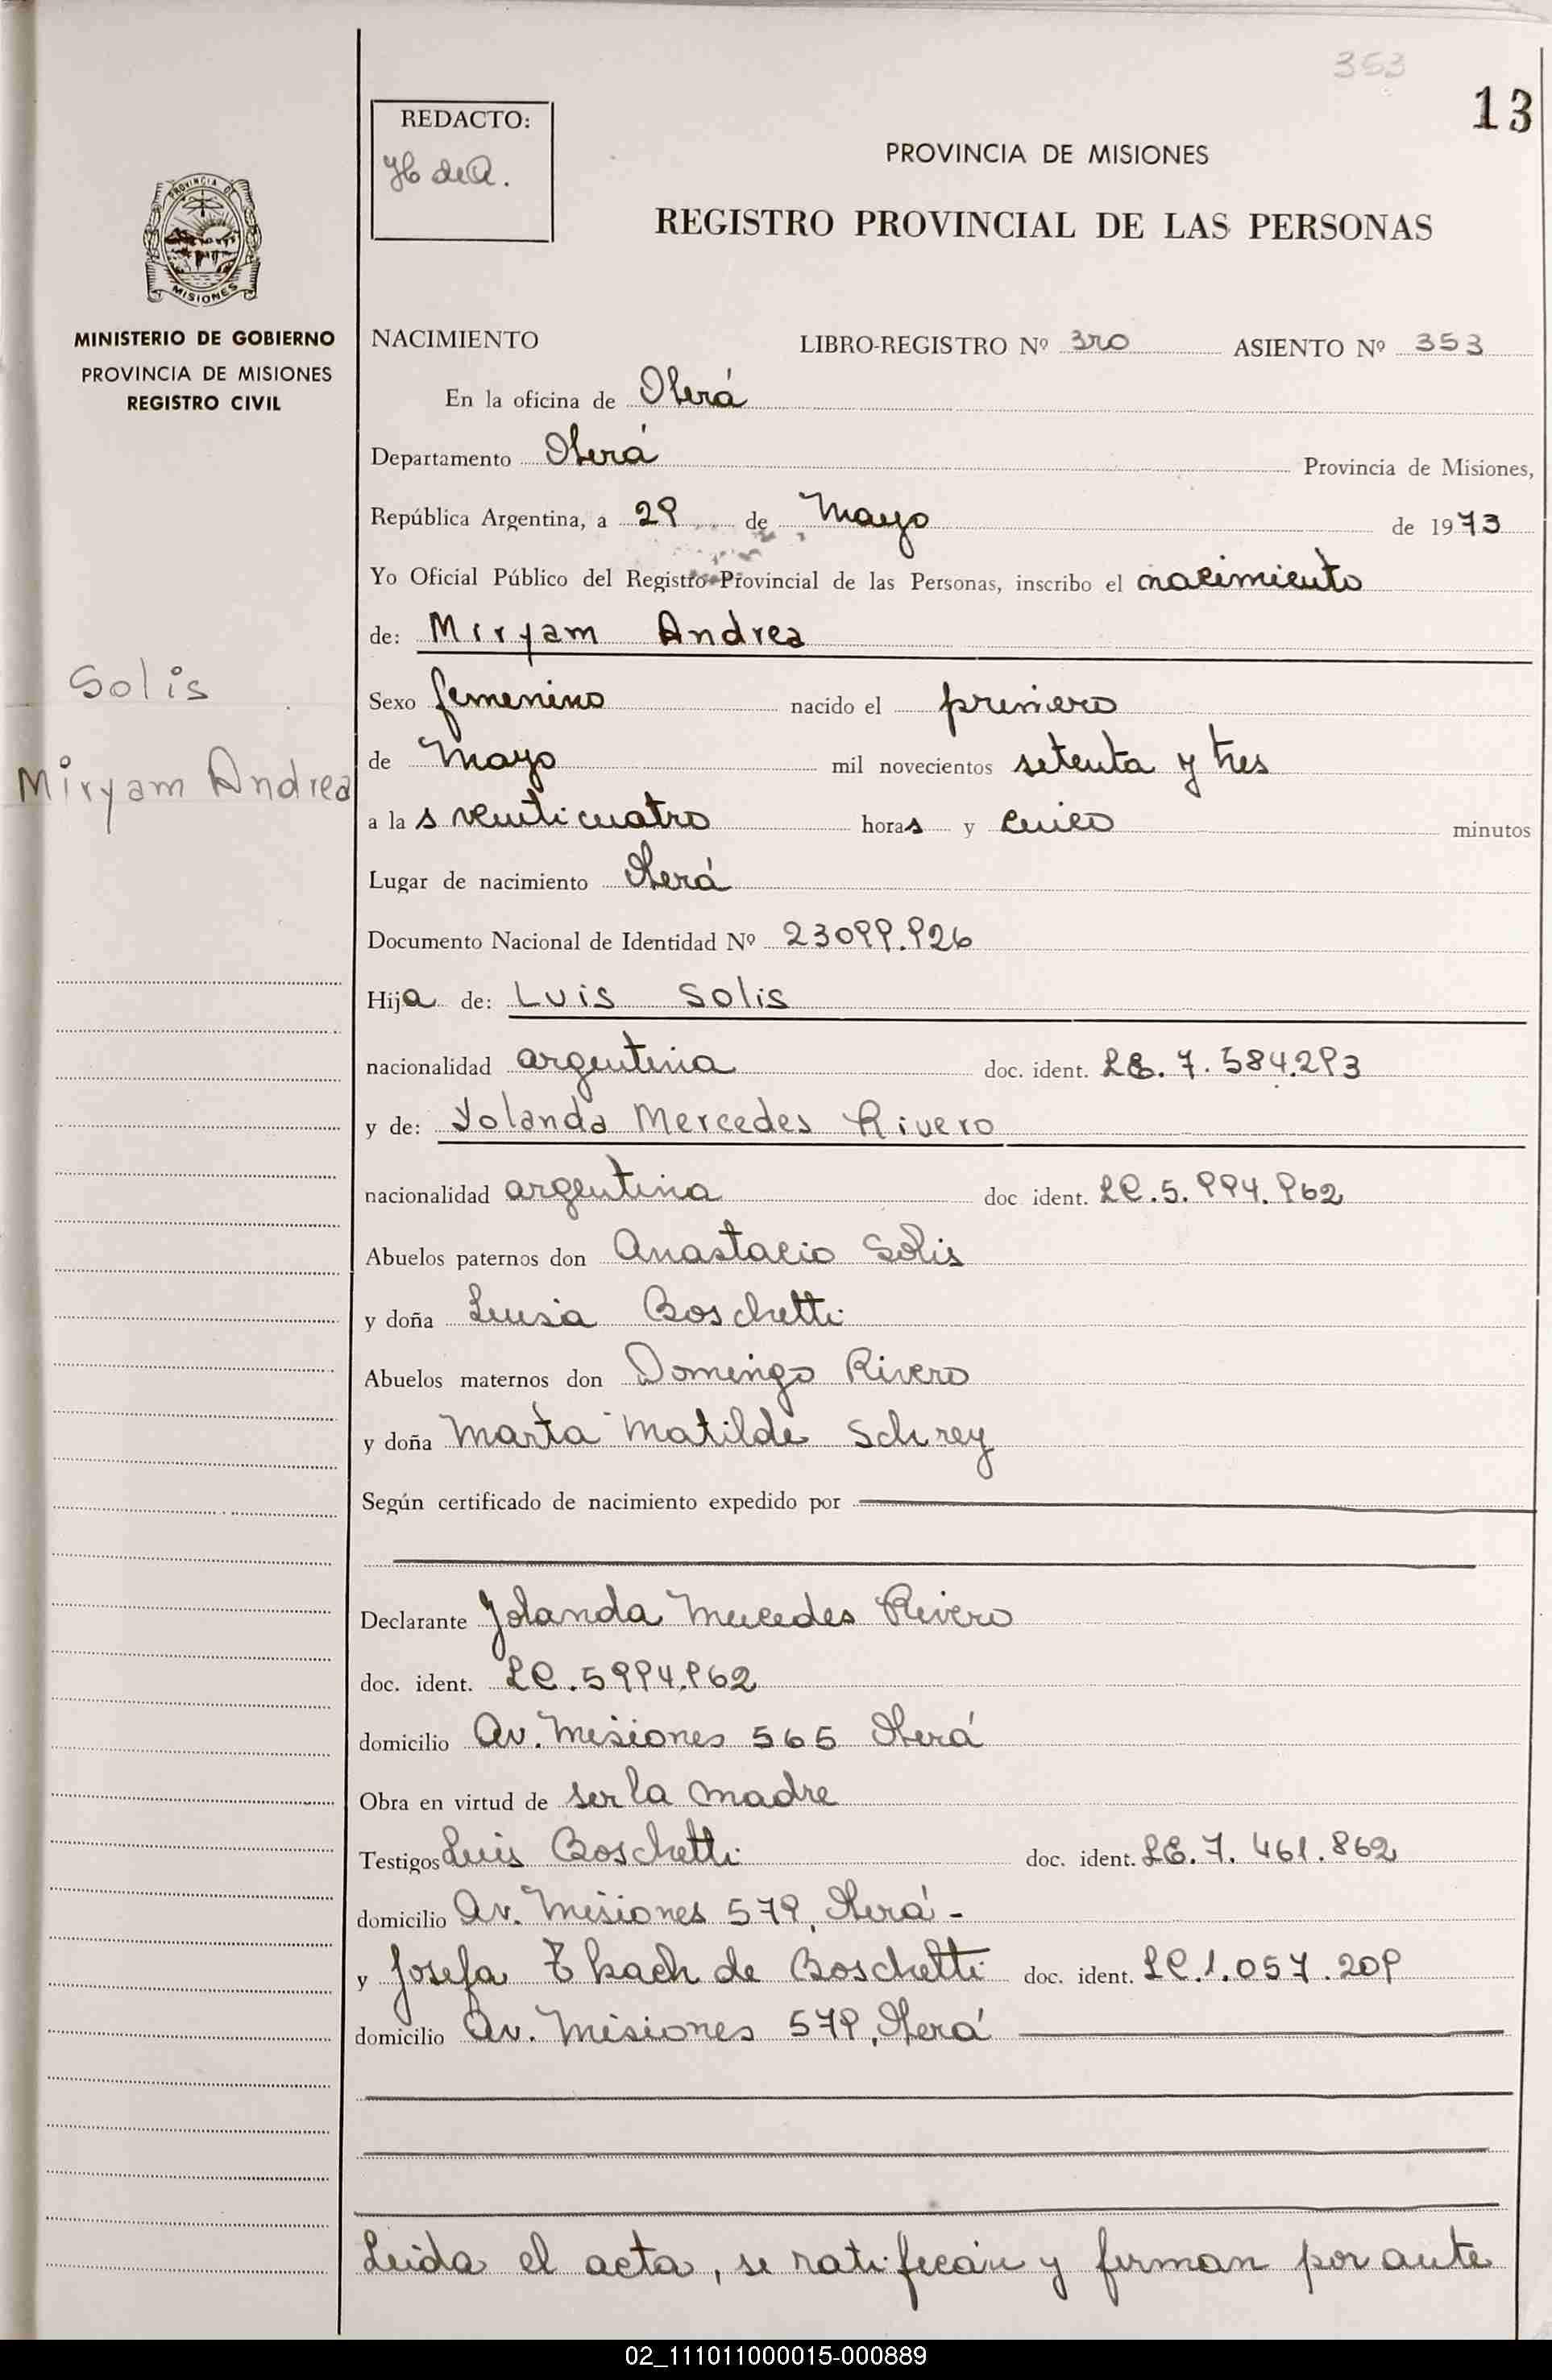 353
13
REDACTO:
PROVINCIA DE MISIONES
REGISTRO PROVINCIAL DE LAS PERSONAS
PROVINCIA DE
MISIONES
MINISTERIO DE GOBIERNO
PROVINCIA DE MISIONES
REGISTRO CIVIL
NACIMIENTO LIBRO-REGISTRO Nº 3ro ASIENTO Nº 353
En la oficina de Oberá
Departamento Oberá Provincia de Misiones,
República Argentina, a 29 de Mayo de 1973
Yo Oficial Público del Registro Provincial de las Personas, inscribo el nacimiento
de: Miryam Andrea
Solis
Miryam Andrea
Sexo femenino nacido el primero
de Mayo mil novecientos setenta y tres
a las veinticuatro horas y cinco minutos
Lugar de nacimiento Oberá
Documento Nacional de Identidad Nº 23099.926
Hija de: Luis Solis
nacionalidad argentina doc. ident. LE. 7.584.293
y de: Yolanda Mercedes Rivero
nacionalidad argentina doc ident. LC.5.994.962
Abuelos paternos don Anastacio Solis
y doña Luisa Boschetti
Abuelos maternos don Domingo Rivero
y doña Marta Matilde Schrey
Según certificado de nacimiento expedido por
Declarante Yolanda Mercedes Rivero
doc. ident. LC.5994.962
domicilio Av. Misiones 565 Oberá
Obra en virtud de ser la madre
Testigos Luis Boschetti doc. ident. LE.7.461.862
domicilio Av. Misiones 579, Oberá -
y Josefa Tkach de Boschetti doc. ident. LC.1.057.209
domicilio Av. Misiones 579, Oberá
Leida el acta, se ratifican y firman por ante
02_111011000015-000889